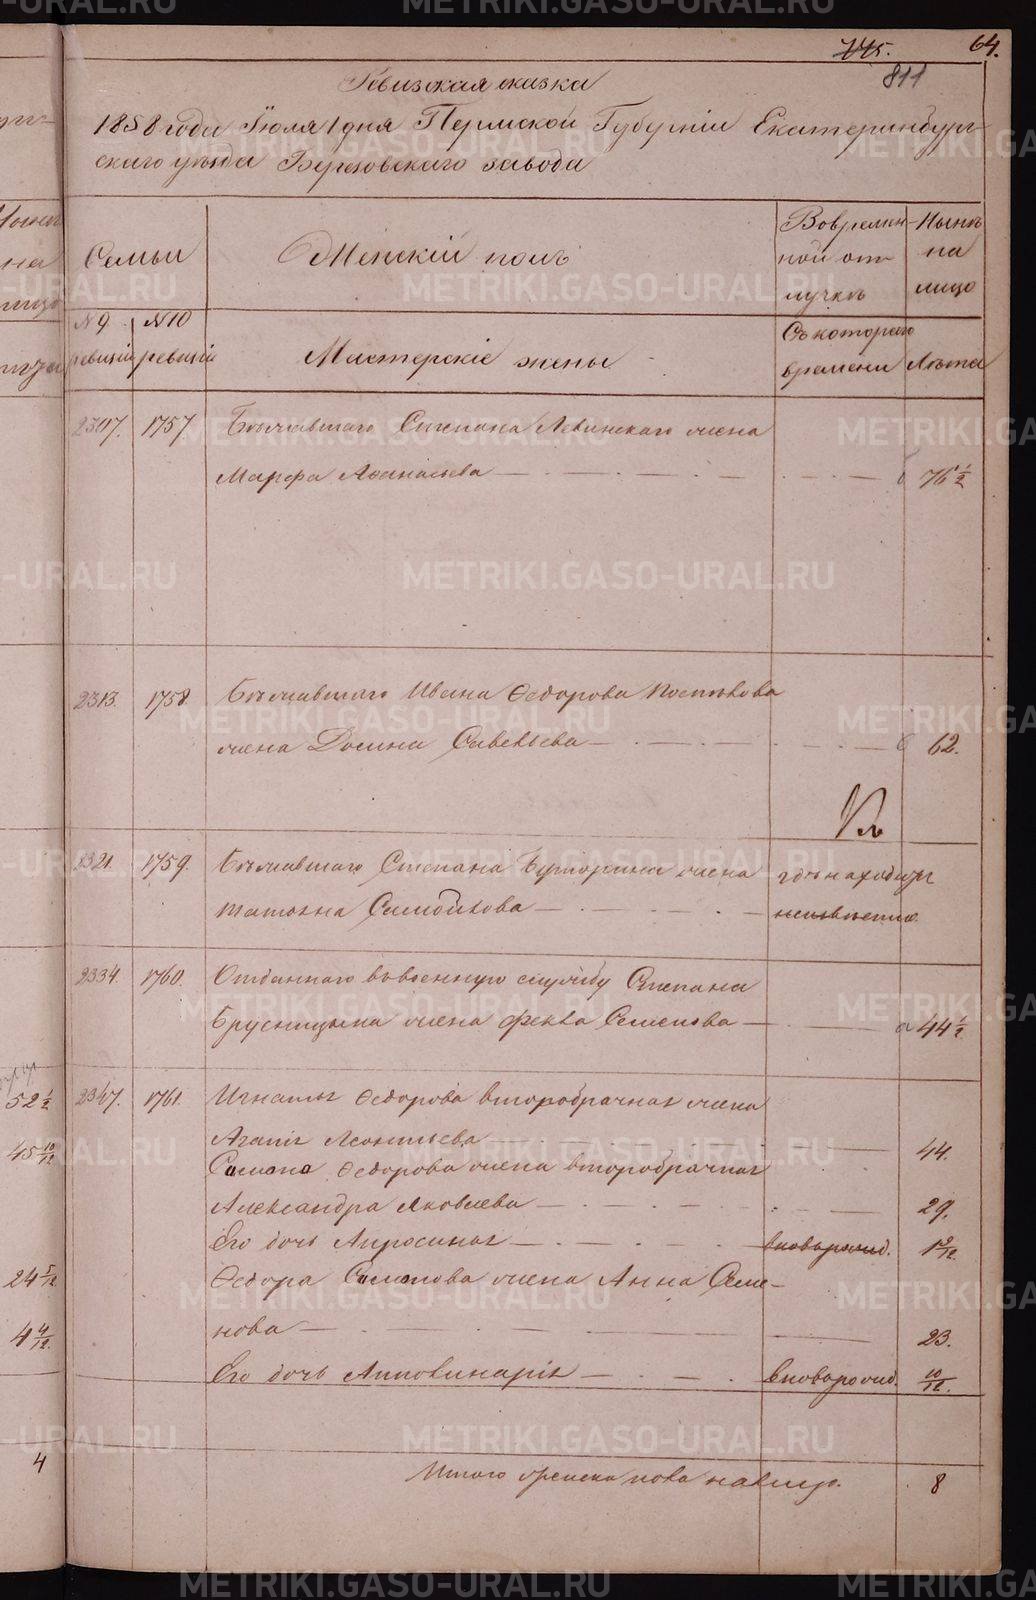 745.
64.
811
Ревизская сказка
1858 года Июля 1 дня Пермской Губернии Екатеринбург-
скаго уезда Березовскаго завода
Семьи
Женскій полъ
Вовремен-
ной от-
лучкѣ
Нынѣ
на
лицо
№ 9 ревизіи
№ 10 ревизіи
Мастерскіе жены
Съ котораго
времени
Лѣта
2307. 1757 Бѣжавшаго Степана Левинскаго жена
Марфа Афанасьева 76 1/2
2313. 1758 Бѣжавшаго Ивана Федорова Поспѣлова
жена Домна Савельева 62.
2321. 1759. Бѣжавшаго Степана Буторина жена гдѣ находится
татьяна Самойлова неизвѣстно.
2334. 1760. Отданнаго въ военную службу Степана
Брусницына жена фекла Семенова 44 1/2
52 1/2 2347. 1761. Игнатья Федорова второбрачная жена
45 10/12 Агапія Леонтьева 44.
Самана Федорова жена второбрачная
Александра Яковлева 29.
Его дочь Апросинья вноворожд. 1 9/12.
24 5/12 Федора Саманова жена Анна Семе-
4 4/12 нова 23.
Его дочь Апполинарія вноворожд. 10/12.
4 Итого женска пола налицо. 8
METRIKI.GASO-URAL.RU